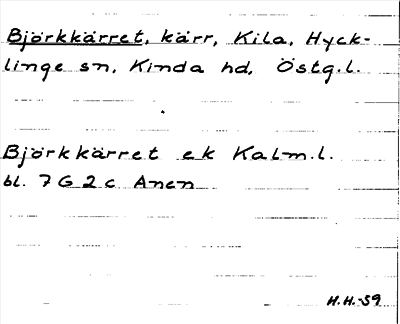 Björkkärret, kärr, Kila, Hyck-
linge sn, Kinda hd, Östg.l.
Björkkärret ek Kalm.l.
bl. 7 G 2 c Anen
H.H.-59